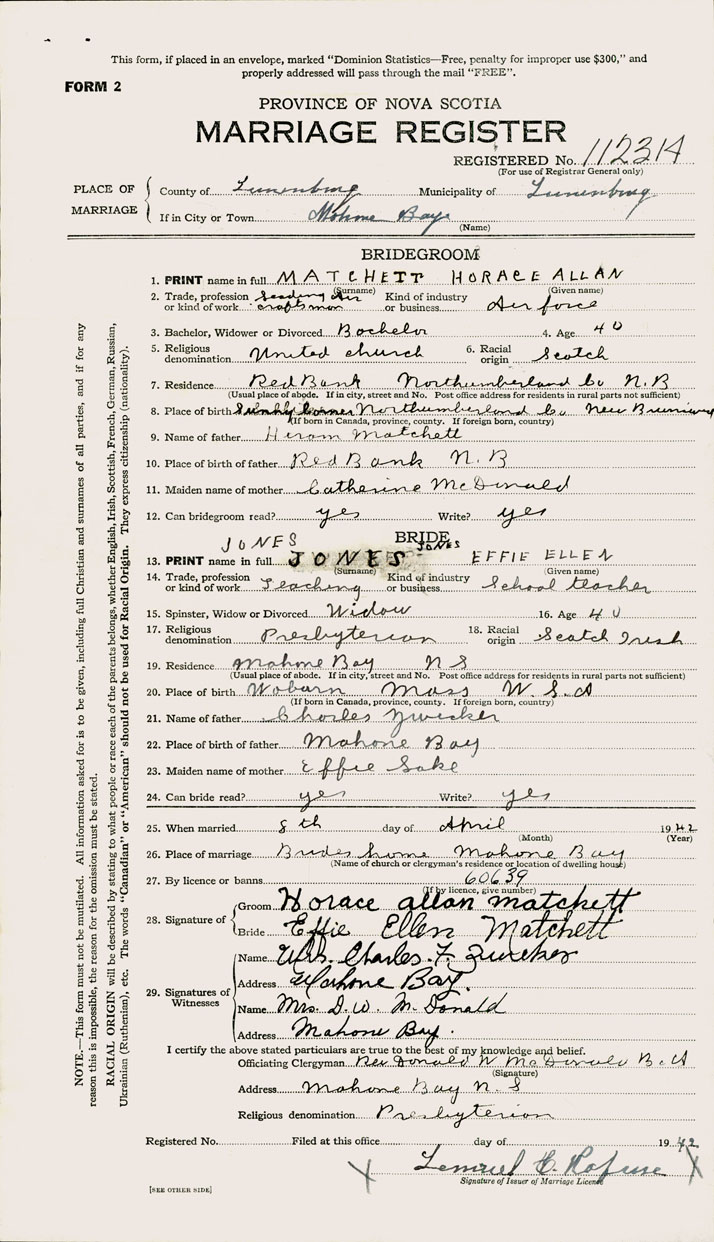 This form, if placed in an envelope, marked "Dominion Statistics—Free, penalty for improper use $300," and
properly addressed will pass through the mail "FREE".
FORM 2
PROVINCE OF NOVA SCOTIA
MARRIAGE REGISTER
REGISTERED No. 112314
(For use of Registrar General only)
PLACE OF MARRIAGE
County of Lunenburg Municipality of Lunenburg
If in City or Town Mahone Bay
(Name)
BRIDEGROOM
1. PRINT name in full MATCHETT HORACE ALLAN
(Surname) (Given name)
2. Trade, profession or kind of work Leading Air craftsman Kind of industry or business Air force
3. Bachelor, Widower or Divorced Bachelor 4. Age 40
5. Religious denomination United church 6. Racial origin Scotch
7. Residence Red Bank Northumberland Co N.B
(Usual place of abode. If in city, street and No. Post office address for residents in rural parts not sufficient)
8. Place of birth Northumberland Co New Brunswick
(If born in Canada, province, county. If foreign born, country)
9. Name of father Hiram Matchett
10. Place of birth of father Red Bank N.B
11. Maiden name of mother Catherine McDonald
12. Can bridegroom read? yes Write? yes
BRIDE
JONES JONES
13. PRINT name in full JONES EFFIE ELLEN
(Surname) (Given name)
14. Trade, profession or kind of work Teaching Kind of industry or business School teacher
15. Spinster, Widow or Divorced Widow 16. Age 40
17. Religious denomination Presbyterian 18. Racial origin Scotch Irish
19. Residence Mahone Bay N S
(Usual place of abode. If in city, street and No. Post office address for residents in rural parts not sufficient)
20. Place of birth Woburn Mass U.S.A
(If born in Canada, province, county. If foreign born, country)
21. Name of father Charles Zwicker
22. Place of birth of father Mahone Bay
23. Maiden name of mother Effie
24. Can bride read? yes Write? yes
25. When married 8th day of April 1942
(Month) (Year)
26. Place of marriage Brides home Mahone Bay
(Name of church or clergyman's residence or location of dwelling house)
27. By licence or banns 60639
(If by licence, give number)
28. Signature of
Groom Horace allan matchett
Bride Effie Ellen Matchett
29. Signatures of Witnesses
Name Mrs. Charles F. Zwicker
Address Mahone Bay.
Name Mrs. D. W. McDonald
Address Mahone Bay.
I certify the above stated particulars are true to the best of my knowledge and belief.
Officiating Clergyman Rev Donald W McDonald B.A
(Signature)
Address Mahone Bay N. S
Religious denomination Presbyterian
Registered No. Filed at this office day of 1942
X Lemuel C. Rafuse X
Signature of Issuer of Marriage License
[SEE OTHER SIDE]
NOTE.—This form must not be mutilated. All information asked for is to be given, including full Christian and surnames of all parties, and if for any
reason this is impossible, the reason for the omission must be stated.
RACIAL ORIGIN will be described by stating to what people or race each of the parents belongs, whether English, Irish, Scottish, French, German, Russian,
Ukrainian (Ruthenian), etc. The words "Canadian" or "American" should not be used for Racial Origin. They express citizenship (nationality).